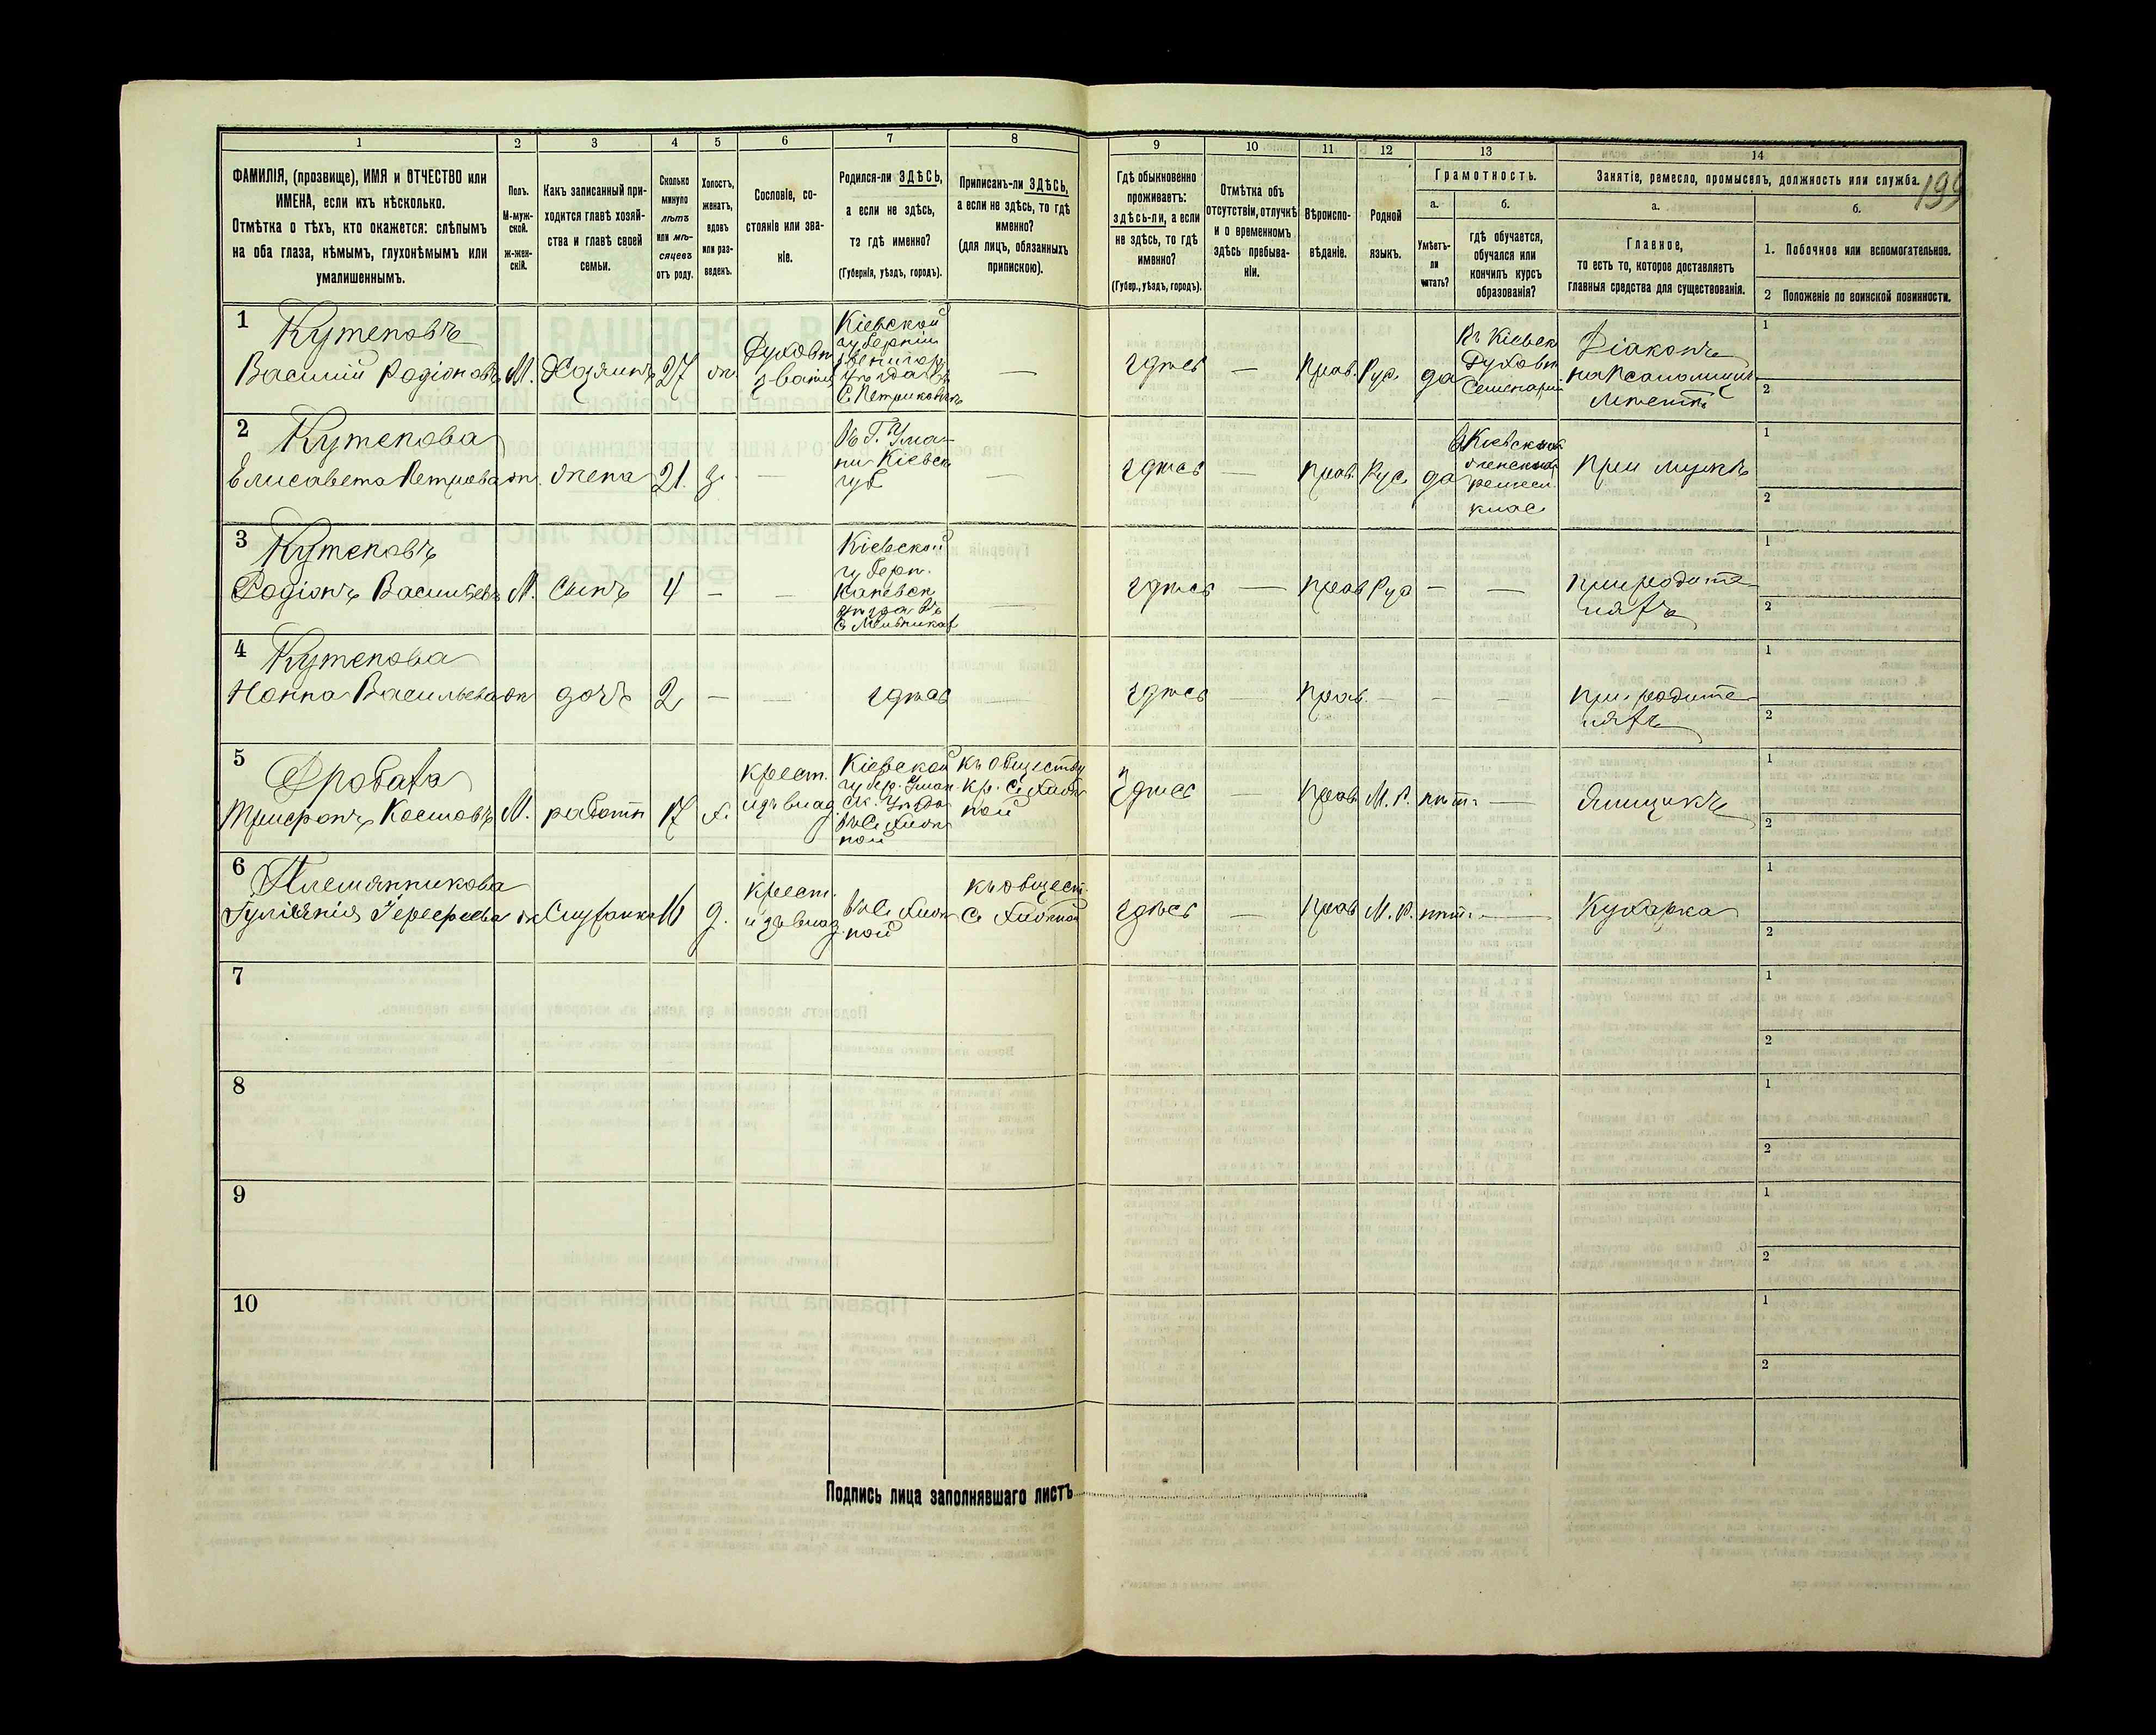 1 2 3 4 5 6 7 8 9 10 11 12 13 14
199
ФАМИЛІЯ, (прозвище), ИМЯ и ОТЧЕСТВО или
ИМЕНА, если ихъ нѣсколько.
Отмѣтка о тѣхъ, кто окажется: слѣпымъ
на оба глаза, нѣмымъ, глухонѣмымъ или
умалишеннымъ.
Полъ.
М-муж-
ской.
ж-жен-
скій.
Какъ записанный при-
ходится главѣ хозяй-
ства и главѣ своей
семьи.
Сколько
минуло
лѣтъ
или мѣ-
сяцевъ
отъ роду.
Холостъ,
женатъ,
вдовъ
или раз-
веденъ.
Сословіе, со-
стояніе или зва-
ніе.
Родился-ли ЗДѢСЬ,
а если не здѣсь,
то гдѣ именно?
(Губернія, уѣздъ, городъ).
Приписанъ-ли ЗДѢСЬ,
а если не здѣсь, то гдѣ
именно?
(для лицъ, обязанныхъ
припискою).
Гдѣ обыкновенно
проживаетъ:
здѣсь-ли, а если
не здѣсь, то гдѣ
именно?
(Губер., уѣздъ, городъ).
Отмѣтка объ
отсутствіи, отлучкѣ
и о временномъ
здѣсь пребыва-
ніи.
Вѣроиспо-
вѣданіе.
Родной
языкъ.
Грамотность.
а.
Умѣетъ-
ли
читать?
б.
гдѣ обучается,
обучался или
кончилъ курсъ
образованія?
Занятіе, ремесло, промыселъ, должность или служба.
а.
Главное,
то есть то, которое доставляетъ
главныя средства для существованія.
б.
1. Побочное или вспомогательное.
2 Положеніе по воинской повинности.
1
Кутеповъ
Василій Родіоновъ
М.
Хозяинъ
27
ж.
Духовн.
званія
Кіевской
губерніи
Звенигор.
уѣзда въ
С. Петриковкѣ
—
здѣсь
—
Прав.
Рус.
да
Въ Кіевск
Духовн
Семенаріи
Діаконъ
на Псаломщиц.
мѣстѣ
1
2
2
Кутепова
Елисавета Петрова
ж.
жена
21.
з.
—
Въ Г. Ума-
ни Кіевск
губ
—
здѣсь
—
Прав.
Рус
да
женском
клас
При мужѣ
1
2
3
Кутеповъ
Родіонъ Васильевъ
М.
Сынъ
4
—
—
Кіевской
губерн.
Каневск
уѣзда въ
С. Мельникахъ
—
здѣсь
—
Прав
Рус
—
—
При родите-
ляхъ
1
2
4
Кутепова
Нонна Васильева
ж
дочь
2
—
—
здѣсь
—
здѣсь
—
Прав.
—
—
—
При родите-
ляхъ
1
2
5
Трифонъ Космовъ
М.
работн
17
х.
Крест.
Кіевской
губер. Уман.
ск. Уѣзда
Къ обществу
кр. С.
здѣсь
—
Прав
М. Р.
нѣт.
—
Ямщикъ
1
2
6
Племянникова
ж
Служанка
16
д.
крест.
Къ общест.
здѣсь
—
Прав
М. Р.
нѣт.
—
Кухарка
1
2
7
1
2
8
1
2
9
1
2
10
1
2
Подпись лица заполнявшаго листъ